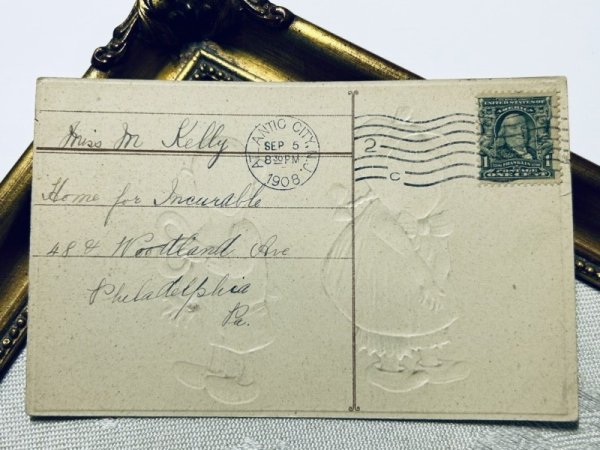 Miss M Kelly
Home for Incurable
48 & Woodland Ave
Philadelphia
Pa.
ATLANTIC CITY, N.J.
SEP 5
8 30 PM
1908
2
C
UNITED STATES OF
AMERICA
1 FRANKLIN 1
POSTAGE
ONE CENT